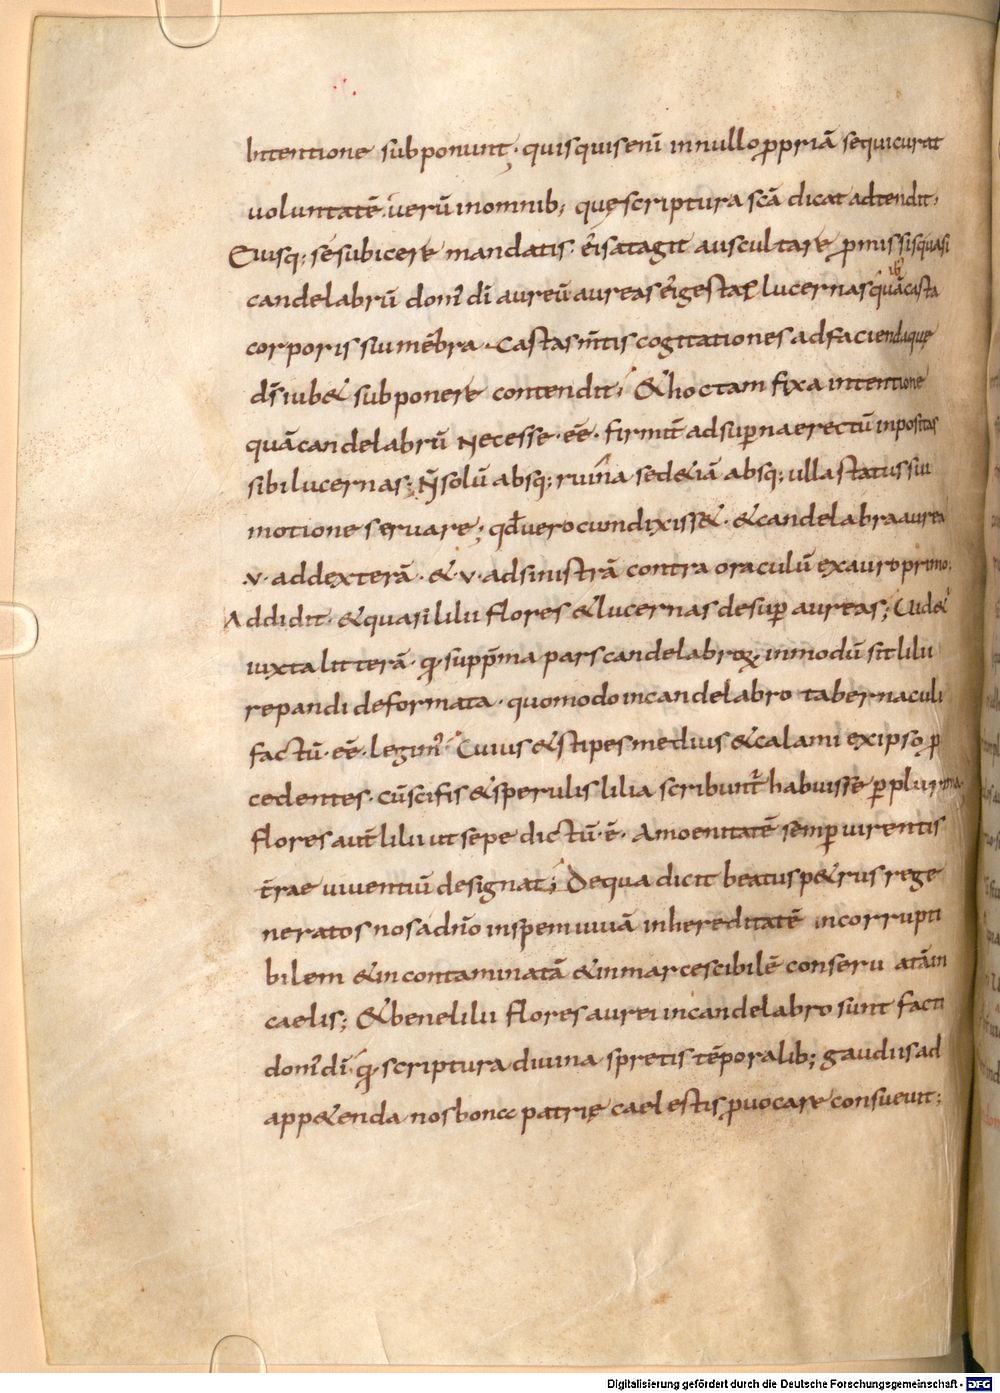 Intentione subponunt· quisquis enī in nullo ꝓpriā sequi curat
voluntatē· verū in omnib; quę scriptura scā dicat adtendit·
Eiusq; se subicere mandatis· ei satagit auscultare ꝓmissis quasi
candelabrū domꝰ dī aureū aureas ei gestat lucernas quā casta
corporis sui mēbra· castas m̄tis cogitationes ad facienda que
dn̄s iub& subponere contendit; & hoc tam fixa intentione
quā candelabrū necesse· eē· firmit̄ ad suꝑna erectū inpositas
sibi lucernas; N̄ solū absq; ruina sed &iā absq; ulla status sui
motione servare; qđ vero cum dixiss&· & candelabra aurea
·v· ad dexterā· & ·v· ad sinistrā contra oraculū ex auro primo,
Addidit· & quasi lilii flores & lucernas desuꝑ aureas; Uid&ꝰ
iuxta litterā· qꝫ supp̄ma pars candelabroꝝ in modū sit lilii
repandi deformata· quomodo in candelabro tabernaculi
factū· eē· legimꝰ Cuius & stipes medius & calami ex ipso ꝓ
cedentes· cū scifis & sperulis lilia scribunt̄ habuisse ꝑplurima·
flores aut̄ lilii ut sepe dictū· ē· Amoenitatē semꝑ virentis
t̄rae viventiū designat; De qua dicit beatus p&rus rege
neratos nos a dn̄o in spem vivā in hereditatē incorrupti
bilem & incontaminatā & inmarcescibilē conseru atā in
caelis; & bene lilii flores aurei in candelabro sunt facti
domꝰ dī qꝫ scriptura divina spretis tēporalib; gaudiis ad
app&enda nos bona patrię caelestis ꝓvocare consuevit;
Digitalisierung gefördert durch die Deutsche Forschungsgemeinschaft - DFG